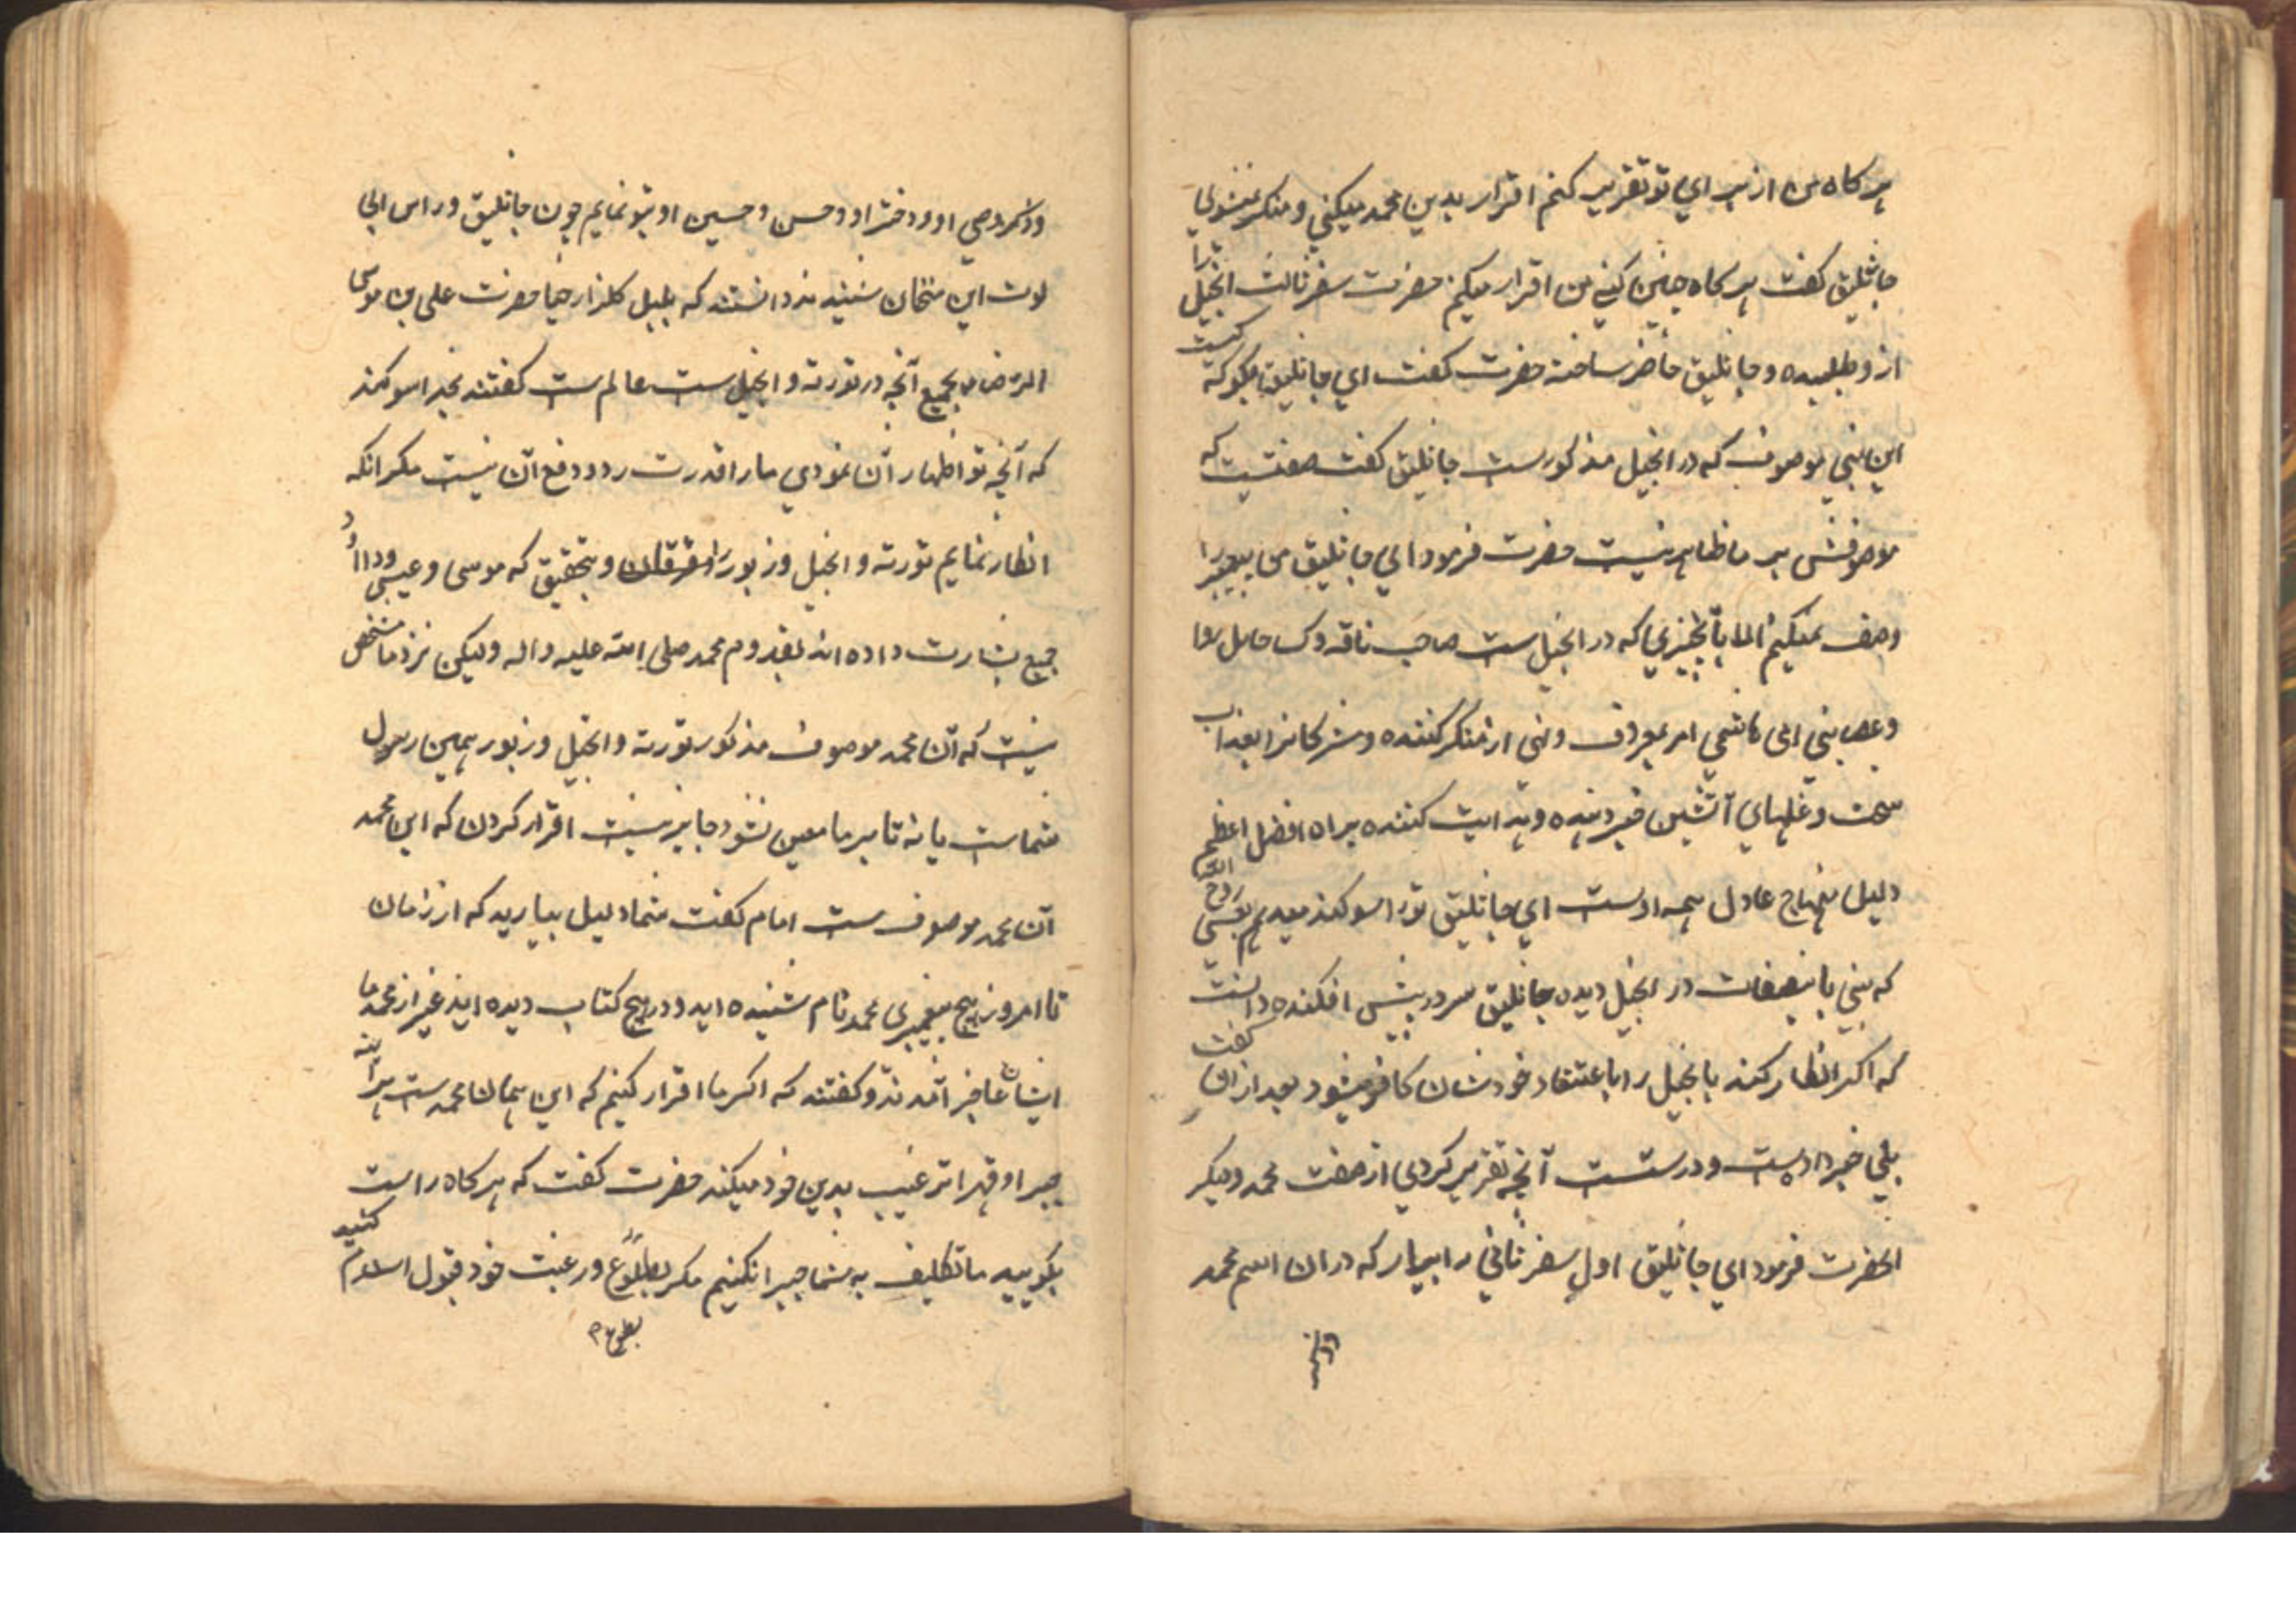 هر کاه من از برای تو تقریر کنم اقرار بدین محمد میکنی و منکر نمیشوی
جاثلیق کفت هر کاه چنین کنی من اقرار میکنم حضرت سفر ثالث انجیل را
از و طلبیده و جاثلیق حاضر ساخته حضرت کفت ای جاثلیق بکو که کیست
این نبی موصوف که در انجیل مذکورست جاثلیق کفت صفتیست که
موصوفش بر ما ظاهر نیست حضرت فرمود ای جاثلیق من پیغمبر را
وصف نمیکنم الا بآنچیزی که در انجیل ست صاحب ناقه و کسا حامل روا
و عصا نبی امی هاشمی امر بمعروف و نهی از منکر کننده و مشرکانرا بعذاب
سخت و غلهای آتشین خبر دهنده و هدایت کننده براه افضل اعظم
دلیل منهاج عادل همه اوست ای جاثلیق ترا سوکند میدهم بعیسی روح الله
که نبی باینصفات در انجیل دیده جاثلیق سر در پیش افکنده دانست
که اکر انکار کند با انجیل را باعتقاد خودشان کافر میشود بعد از ان کفت
بلی خبر داده است و درستست آنچه تقریر کردی از صفت محمد و دیکر
انحضرت فرمود ای جاثلیق اول سفر ثانی را بیار که در ان اسم محمد
و ذکر وصی او و دختر او و حسن و حسین او بتو نمایم چون جاثلیق و راس الی
لوت این سخنان شنیدند دانستند که بلبل کلزار حیا حضرت علی بن موسی
الرضا بجمیع آنچه در تورته و انجیل ست عالم ست کفتند بخدا سوکند
که آنچه تو اظهار آن نمودی ما را قدرت رد و دفع آن نیست مکر انکه
انکار نمایم تورته و انجیل و زبور را و فرقان و بتحقیق که موسی و عیسی و داود
جمیع بشارت داده اند بقدوم محمد صلی الله علیه و اله ولیکن نزد ما مشخص
نیست که آن محمد موصوف مذکور تورته و انجیل و زبور همین رسول
شماست یا نه تا بر ما معین نشود جایز نیست اقرار کردن که این محمد
آن محمد موصوف ست امام کفت شما دلیل بیارید که از زمان
تا امروز هیچ پیغمبری محمد نام شنیده اید و در هیچ کتاب دیده اید غیر از محمد ما
ایشان عاجز آمدند و کفتند که اکر ما اقرار کنیم که این همان محمدست هراینه
جبرا و قهرا ترغیب بدین خود میکند حضرت کفت که هر کاه راست
بکویید ما تکلیف به شما جبرا نکنیم مکر بطوع و رغبت خود قبول اسلام کنید